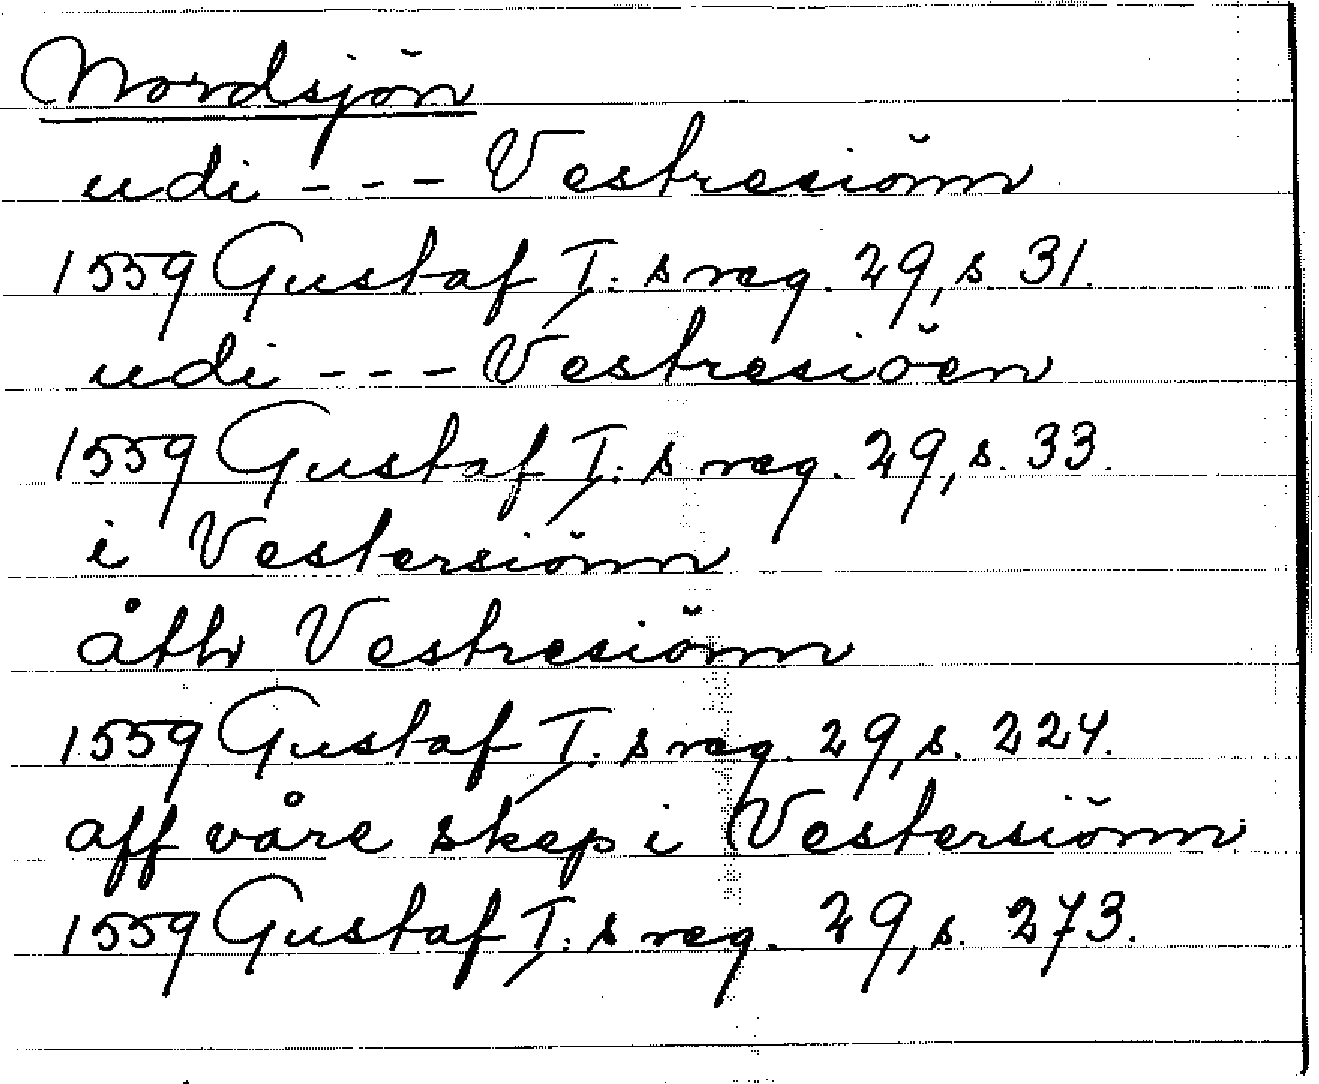 Nordsjön
udi --- Vestresiönn
1559 Gustaf I:s reg. 29, s. 31.
udi --- Vestresiöen
1559 Gustaf I:s reg. 29, s. 33.
i Vestersiönn
åth Vestresiönn
1559 Gustaf I:s reg. 29, s. 224.
aff våre skep i Vestersiönn
1559 Gustaf I:s reg. 29, s. 273.